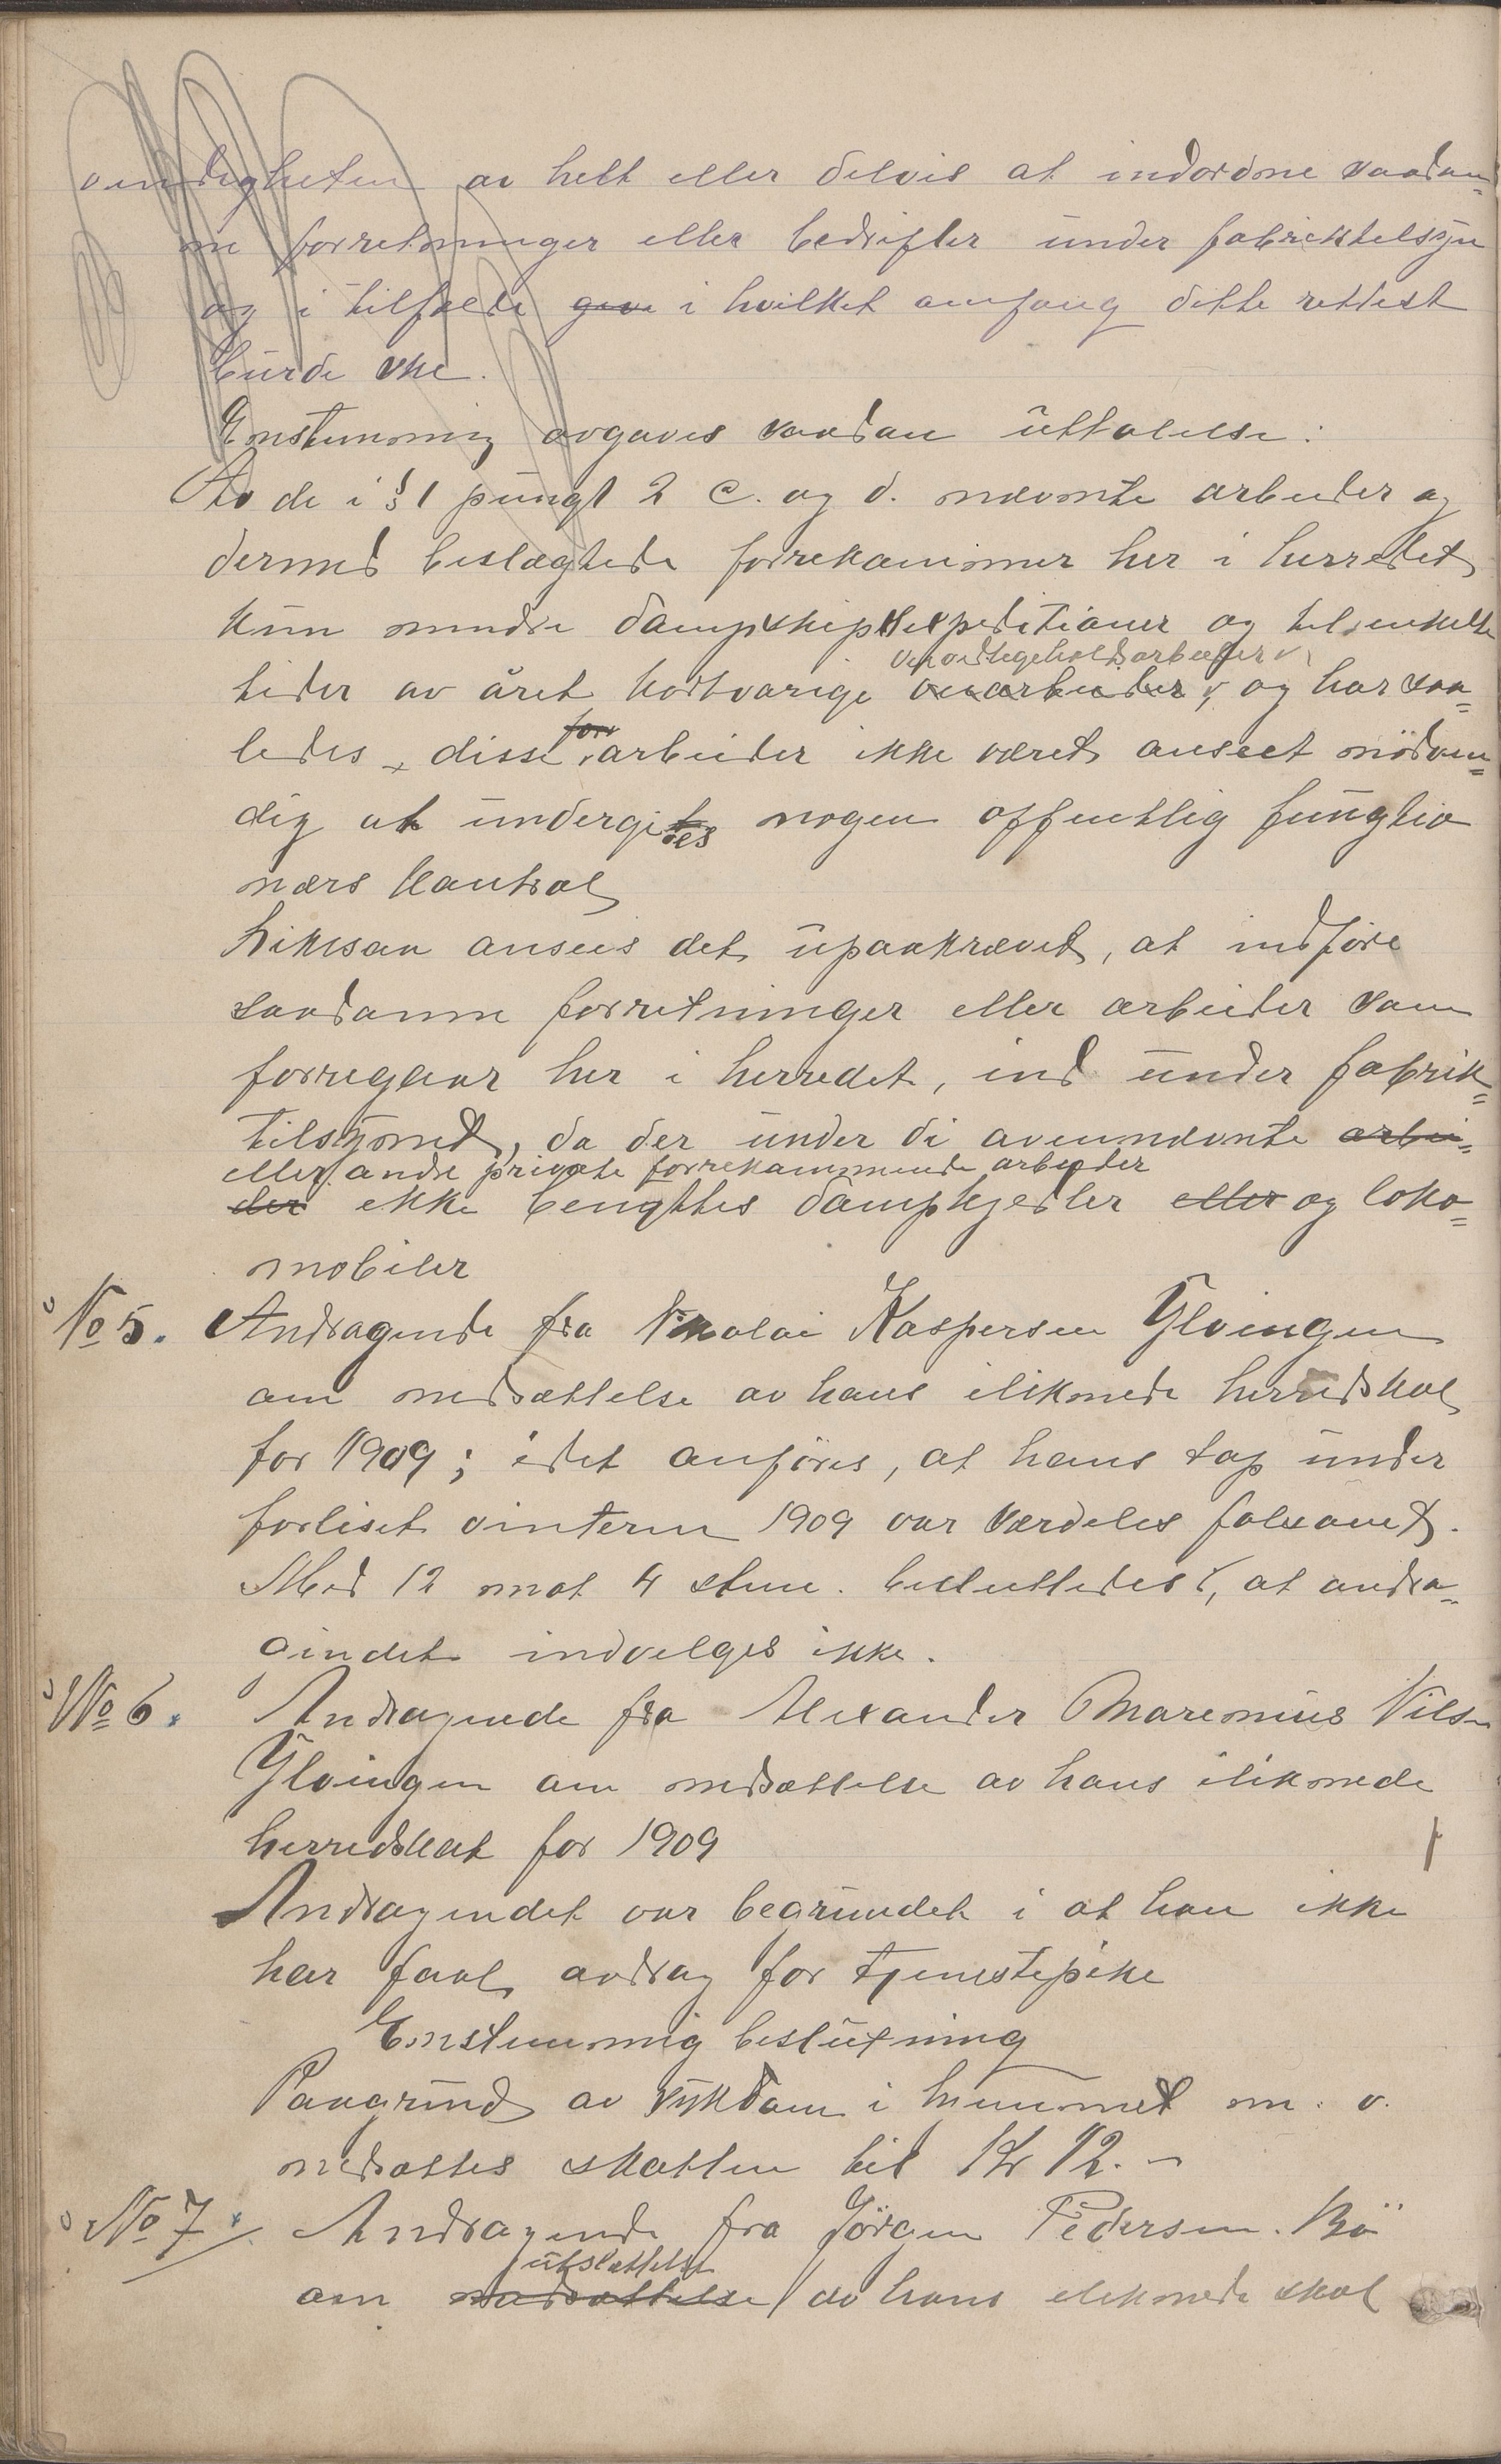 vendigheten av helt eller delvis at indordne saadan=
ne forretninger eller bedrifter under fabriktilsyn
og i tilfælde gave i hvilket omfang dette rettest
burde ske.
Enstemmig avgaves saadan uttalelse:
Av de i § 1 pungt 2 c. og d. nævnte arbeider og
dermed beslægtede forrekommer her i herredet
kun mindre dampskipsexpeditioner og til enkelte
veivedligeholdsarbeider
tider av året kortvarige veiarbeider, og har saa=
for
ledes disse arbeider ikke været anseet nödven=
dig at undergives nogen offentlig fungtio
nærs kontrol
Likesaa ansees det upaakrævet, at indföre
saadanne forretninger eller arbeider som
forregaar her i herredet, ind under fabrik=
tilsynet, da der under di ovennævnte arbei=
eller andre private forrekommende arbeider
der ikke benyttes dampkjedler eller og loko=
mobiler
No 5. Andragende fra Nikolai Kaspersen Ylvingen
om nedsættelse av hans iliknede herredskat
for 1909; idet anföres, at hans tap under
forliset vinteren 1909 var særdeles fölsomt.
Med 12 mot 4 stem. besluttedes, at andra=
gindet indvelges ikke.
No 6. Andragende fra Alexander Marenius Nils.
Ylvingen om nedsættelse av hans iliknede
herredskat for 1909
Andragendet var begrundet i at han ikke
har faat avdrag for tjenestepike
Enstemmig beslutning
Paagrund av sykdom i hemmet m. v.
nedsattes skatten til Kr 12. –
No 7. Andragende fra Jörgen Pedersen. Bö
utslettelse
om nedsættelse av hans iliknede skat